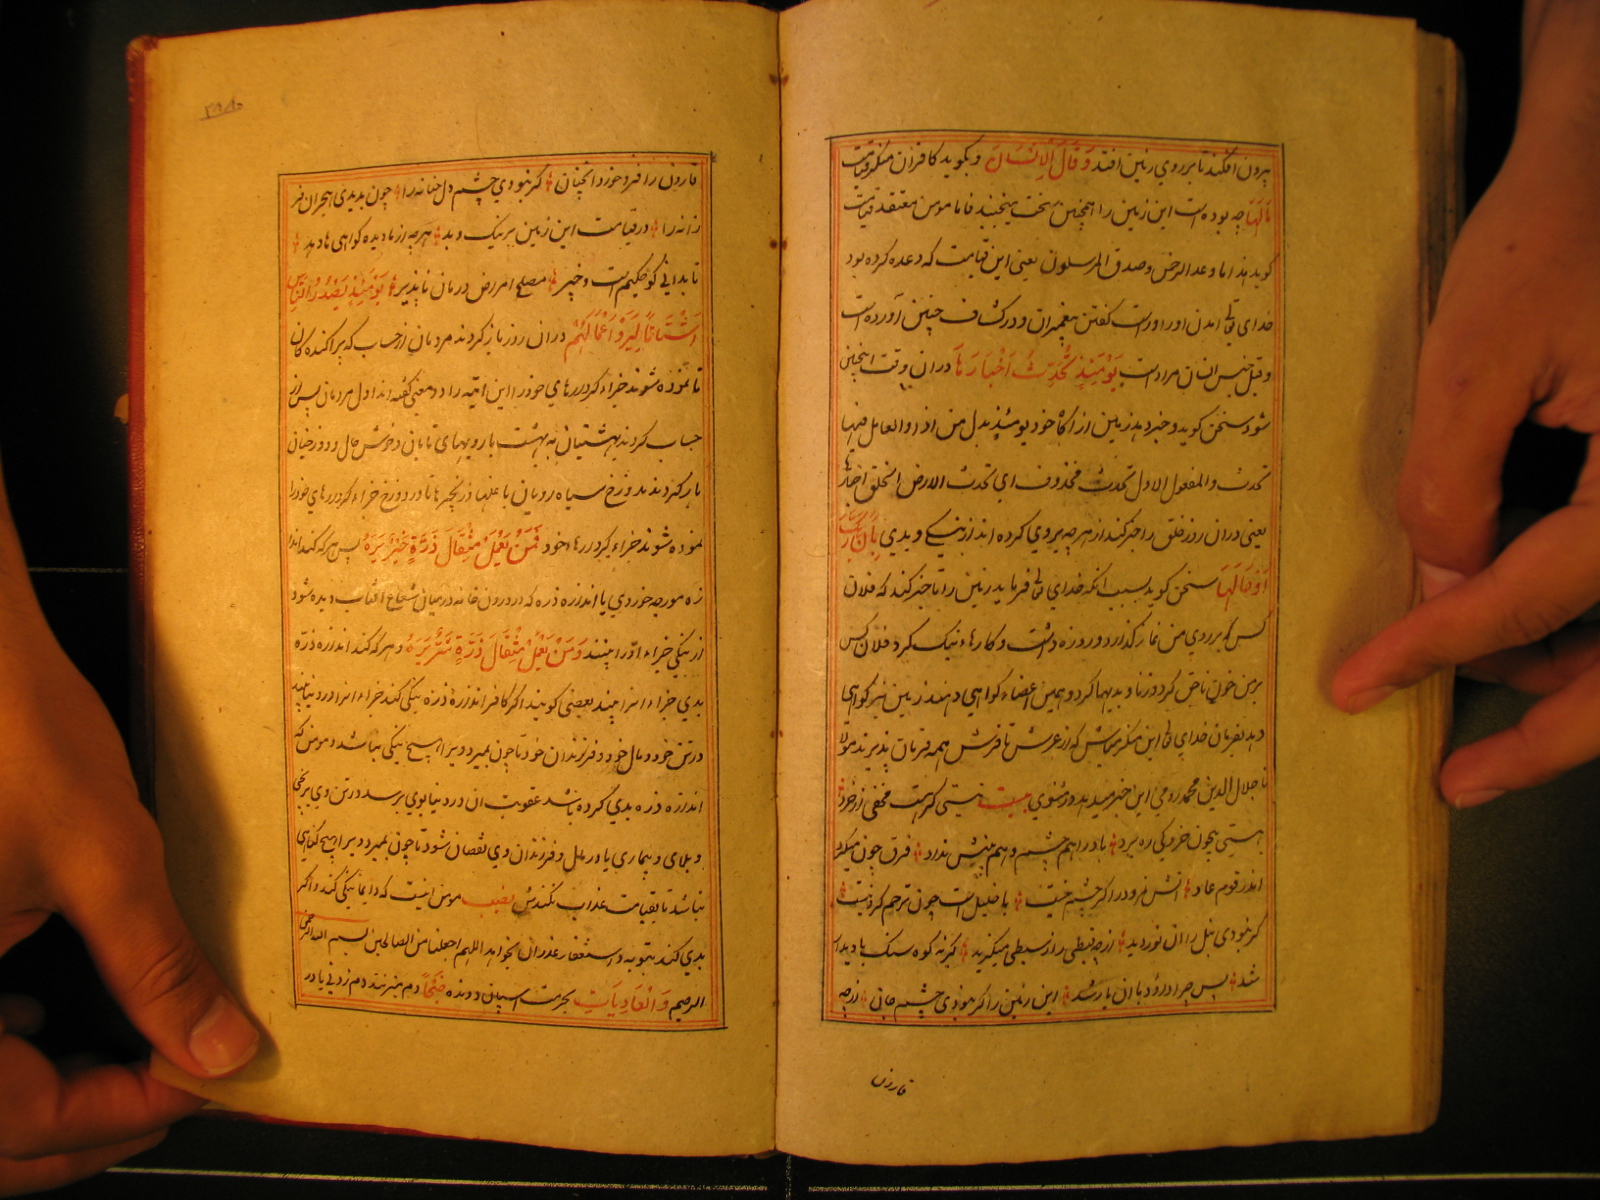 بیرون افکند تا بر روی زمین افتد وَقَالَ الْاِنْسَانُ و بگوید کافران منکر قیامت
مَالَهَا چه بوده است این زمین را همچنین سخت میجنبد فاما مومن معتقد قیامت
کوید هذا ما وعد الرحمن وصدق المرسلون یعنی این قیامت که وعده کرده بود
خدای تعالی امدن او راست کفتن پیغمبران و در کشاف چنین آورده است
وقیل جنس انسان مراد است یَوْمَئِذٍ تُحَدِّثُ اَخْبَارَهَا دران وقت اینچنین
شود سخن کوید و خبر دهد زمین از اکاه خود یومئذ بدل من اذا و العامل فیها
تحدث والمفعول الاول تحدث محذوف ای تحدث الارض الخلق اخبارها
یعنی دران روز خلق را خبر کند از هر چه بر روی کرده اند از نیکی و بدی بِاَنَّ رَبَّكَ
اَوْحَالَهَا سخن کوید بسبب انکه خدای تعالی فرماید زمین را تا خبر کند که فلان
کس بر روی من نماز کذارد و روزه داشت و کارهاء نیک کرد فلان کس
بر من خون ناحق کرد و زنا و بدیها کرد و همین اعضاء کواهی دهند زمین نیز کواهی
دهد بفرمان خدای تعالی این منکر مباش که از عرش تا فرش همه فرمان پذیرند مولا
نا جلال الدین محمد رومی این خبر میدهد در مثنوی بیت
هستی چون خرد کی ره برد باد را هم چشم و هم بینش ندارد فرق چون میکرد
اندر قوم عاد اتش نمرود را کر چشم نیست با خلیل است چون ترحم کرد نیست
کر نبودی نیل را ان نور دید از چه قبطی را ز سبطی میکزید کر نه کوه سنک با دیدار
شد پس چرا داؤد را ان یار شد این زمین را کر نبودی چشم جان از چه
قارون
قارون را فرو خورد انچنان کر نبودی چشم دل حنانه را چون بدیدی هجران فر
زانه را در قیامت این زمین بر نیک و بد هر چه از نادیده کواهی ها دهد
تا بدانی کو حکیم است و خبیر مصلح امراض درمان ناپذیر یَوْمَئِذٍ یَصْدُرُ النَّاسُ
اَشْتَاتًا لِیُرَوْا اَعْمَالَهُمْ دران روز باز کردند مردمان از حساب که پراکنده کان
تا نموده شوند جزاء کردارهای خود را این ایته را دو معنی کفته اند اول مردمان پس از
حساب کردند بهشتیان به بهشت با رویهای تابان و خوش حال و دوزخیان
باز کردند بدوزخ سیاه رویان با غلها و زنجیرها تا در دوزخ جزاء کردارهای خود را
نموده شوند جزاء کردارهاء خود فَمَنْ یَعْمَلْ مِثْقَالَ ذَرَّةٍ خَیْرًا یَرَهُ پس هر که کند اندا
زه مورچه خوردی یا اندازه ذره که در درون خانه در میان شعاع افتاب دیده شود
از نیکی جزاء انرا بیند وَمَنْ یَعْمَلْ مِثْقَالَ ذَرَّةٍ شَرًّا یَرَهُ و هر که کند اندازه ذره
بدی جزاء انرا بیند بعضی کویند اکر کافر اندازه ذره نیکی کند جزاء انرا در دنیا بیند
در تن خود و مال خود و فرزندان خود تا چون بمیرد ویرا هیچ نیکی نباشد و مومن که
اندازه ذره بدی کرده باشد عقوبت ان در دنیا بوی برسد در تن وی برنجی
و بلای و بیماری یا در مال و فرزندان وی نقصان شود تا چون بمیرد ویرا هیچ کناهی
نباشد تا بقیامت عذاب نکندش مومن انیست که دایما نیکی کند و اکر
بدی کند بتوبه و استغفار عذر ان بخواهد اللهم اجعلنا من الصالحین بسم الله الرحمن
الرحیم وَالْعَادِیَاتِ بحرمت اسپان دونده ضَبْحًا دم میزنند دم زدنی با در